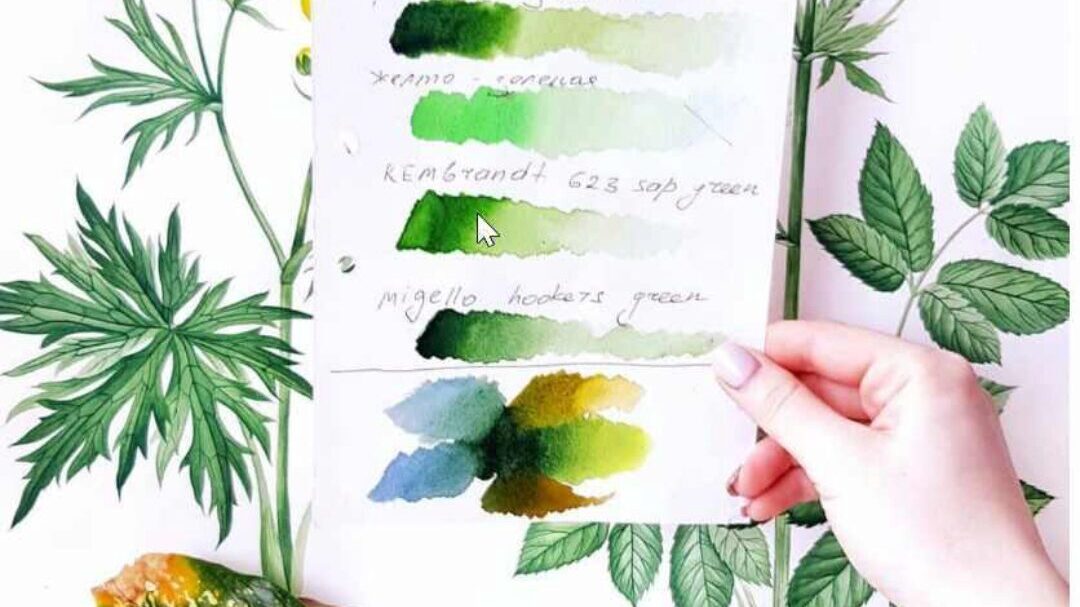 желто - зеленая
REMBrandt 623 sap green
Migello hookers green